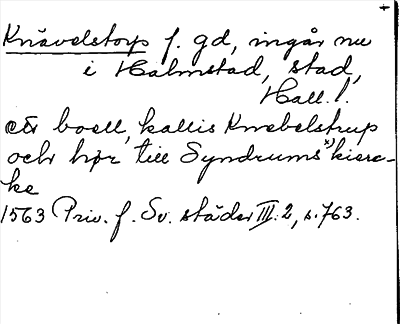 Knävelstorp f. gd, ingår nu
i Halmstad, stad,
Hall. l.
ett boell, kallis Knebelstrup
och hør till Syndrums x) kierc-
ke
1563 Priv. f. Sv. städer III:2, s. 763.